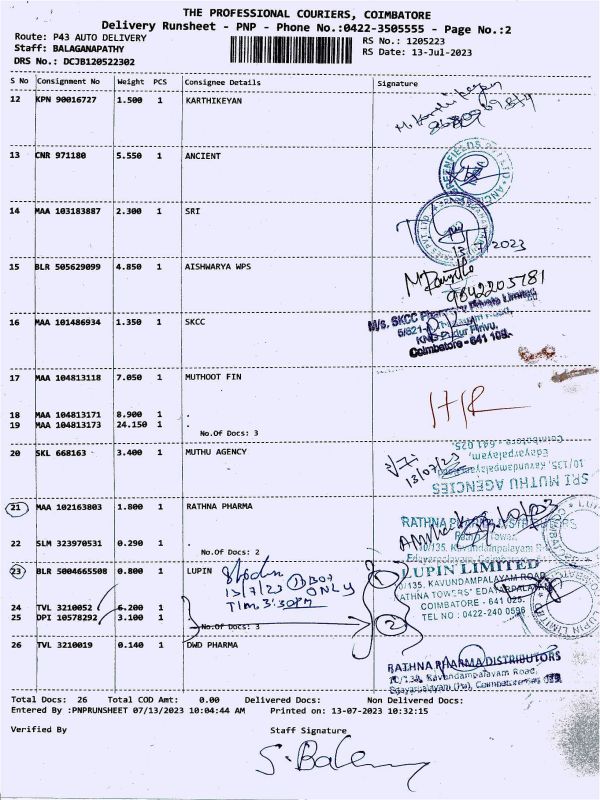 THE PROFESSIONAL COURIERS, COIMBATORE
Delivery Runsheet - PNP - Phone No.:0422-3505555 - Page No.:2
Route: P43 AUTO DELIVERY
RS No.: 1205223
Staff: BALAGANAPATHY
RS Date: 13-Jul-2023
DRS No.: DCJB120522302
S No Consignment No Weight PCS Consignee Details Signature
12 KPN 90016727 1.500 1 KARTHIKEYAN
13 CNR 971180 5.550 1 ANCIENT
14 MAA 103183887 2.300 1 SRI
13 /7/2023
15 BLR 505629099 4.850 1 AISHWARYA WPS
9842205781
16 MAA 101486934 1.350 1 SKCC
M/s. SKCC Private Limited
Coimbatore - 641 109.
17 MAA 104813118 7.050 1 MUTHOOT FIN
18 MAA 104813171 8.900 1 .
19 MAA 104813173 24.150 1 .
No.Of Docs: 3
20 SKL 668163 3.400 1 MUTHU AGENCY
13/07/23
SRI MUTHU AGENCIES
10/135, Kavundampalayam
Edayarpalayam,
Coimbatore - 641 025.
21 MAA 102163803 1.800 1 RATHNA PHARMA
RATHNA
22 SLM 323970531 0.290 1 .
No.Of Docs: 2
23 BLR 5004665508 0.800 1 LUPIN
13/7/23 ONLY
TIM. 3:30PM
1
LUPIN LIMITED
0/135, KAVUNDAMPALAYAM ROAD
ATHNA TOWERS' EDAYARPALAYAM
COIMBATORE - 641 025.
TEL NO : 0422-240 0596
24 TVL 3210052 6.200 1 .
25 DPI 10578292 3.100 1 .
No.Of Docs: 3
2
26 TVL 3210019 0.140 1 DWD PHARMA
RATHNA PHARMA DISTRIBUTORS
Kavundampalayam Road,
Edayarpalayam (Po), Coimbatore
Total Docs: 26 Total COD Amt: 0.00 Delivered Docs: Non Delivered Docs:
Entered By :PNPRUNSHEET 07/13/2023 10:04:44 AM Printed on: 13-07-2023 10:32:15
Verified By Staff Signature